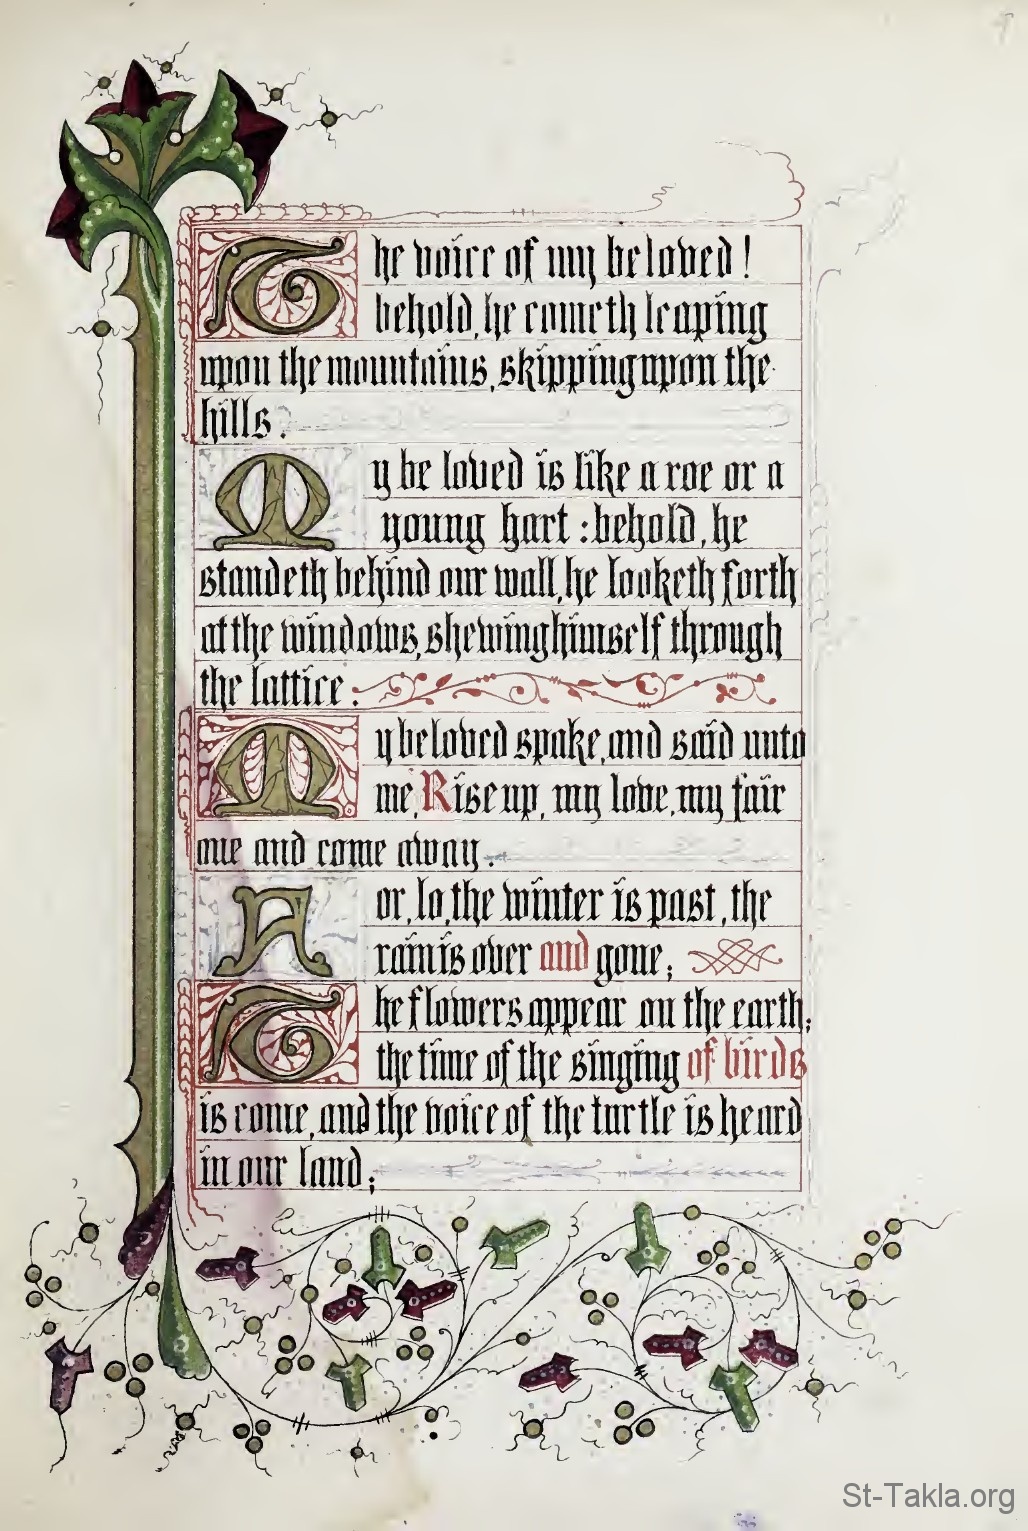 The voice of my beloved!
behold, he cometh leaping
upon the mountains, skipping upon the
hills.
My be loved is like a roe or a
young hart : behold, he
standeth behind our wall, he looketh forth
at the windows, shewing himself through
the lattice.
My beloved spake, and said unto
me, Rise up, my love, my fair
one and come away.
For, lo, the winter is past, the
rain is over and gone;
The flowers appear on the earth;
the time of the singing of birds
is come, and the voice of the turtle is heard
in our land;
St-Takla.org